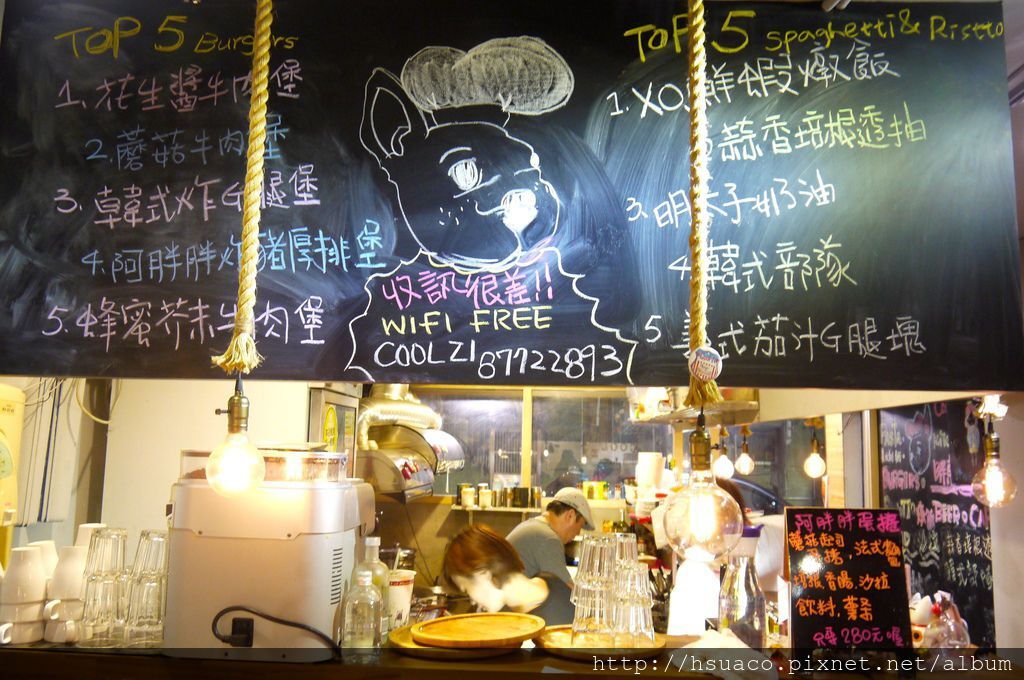 TOP 5 Burgers
1. 花生醬牛肉堡
2. 蘑菇牛肉堡
3. 韓式炸G腿堡
4. 阿胖胖炸豬厚排堡
5. 蜂蜜芥末牛肉堡
收訊很差!!
WIFI FREE
COOLZI 87722893
TOP 5 Spaghetti & Risotto
1. XO 鮮蝦燉飯
蒜香培根透抽
3. 明太子奶油
4 韓式部隊
5 美式茄汁G腿塊
阿胖胖蛋捲
蘑菇起司
法式
香腸, 沙拉
飲料, 薯條
只要280元喔
http://hsuaco.pixnet.net/album